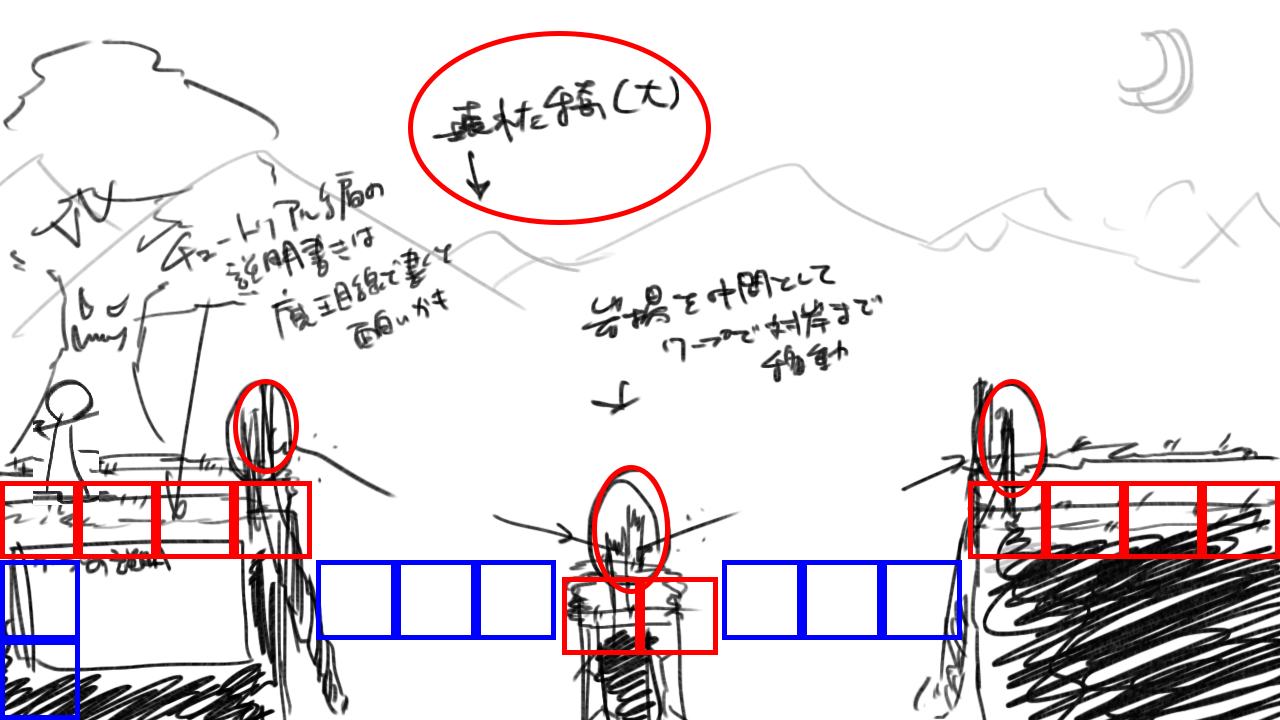 壊れた橋(大)
チュートリアル的な
説明書きは
魔王目線で書くと
面白いかも
岩場を中間として
ワープで対岸まで
移動
の説明